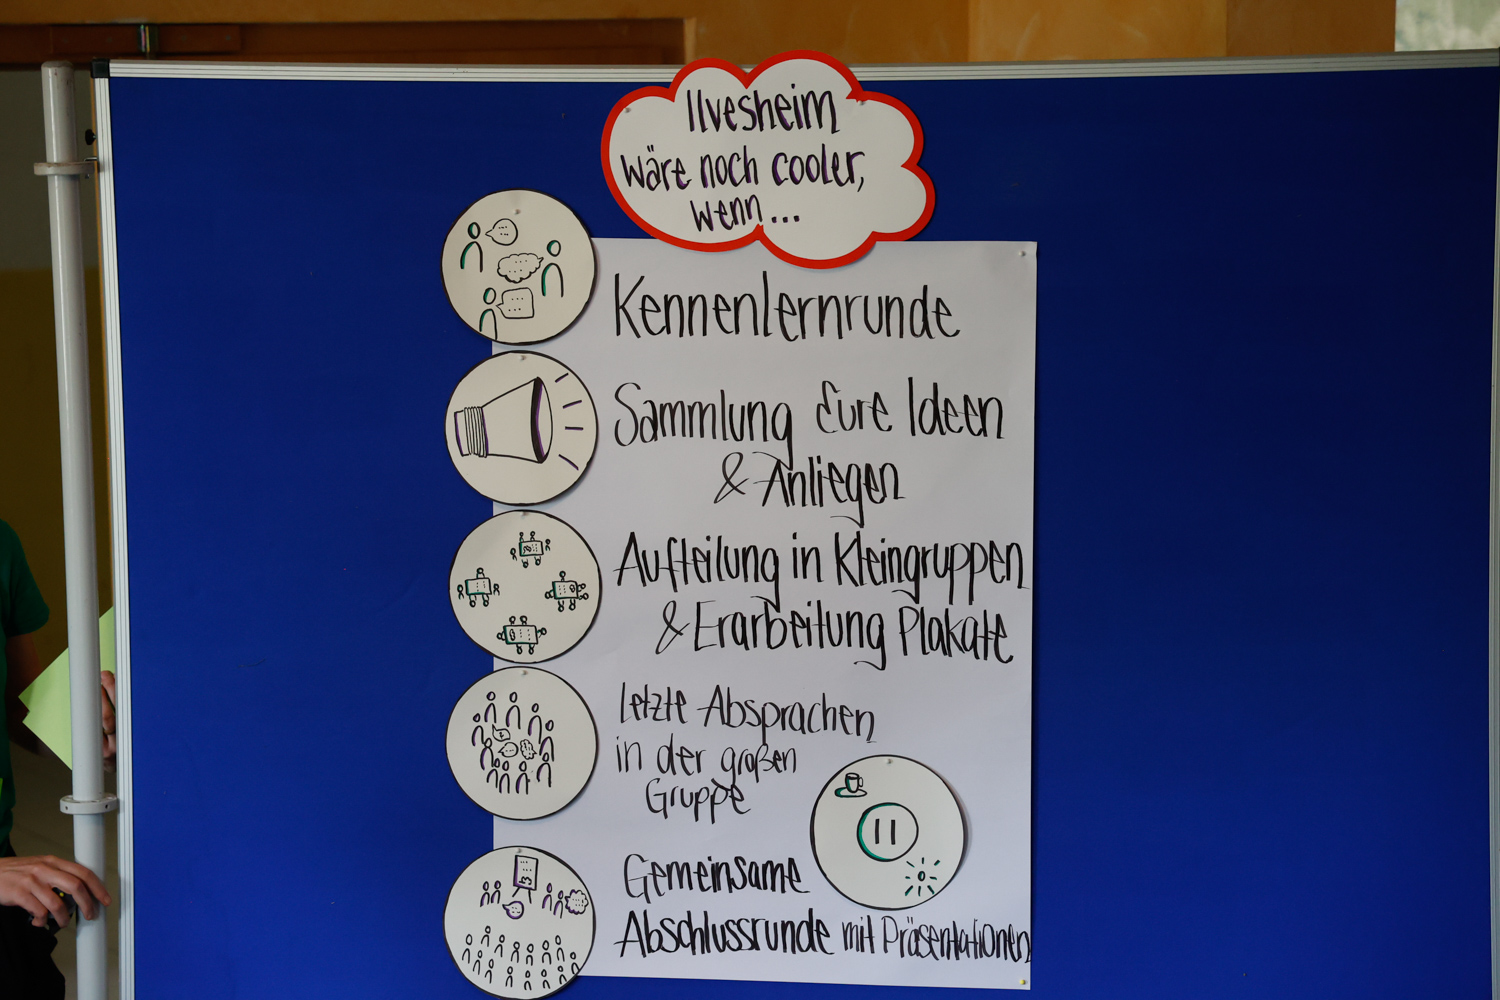 Ilvesheim
wäre noch cooler,
wenn...
Kennenlernrunde
Sammlung Eure Ideen
& Anliegen
Aufteilung in Kleingruppen
& Erarbeitung Plakate
letzte Absprachen
in der großen
Gruppe
Gemeinsame
Abschlussrunde mit Präsentationen